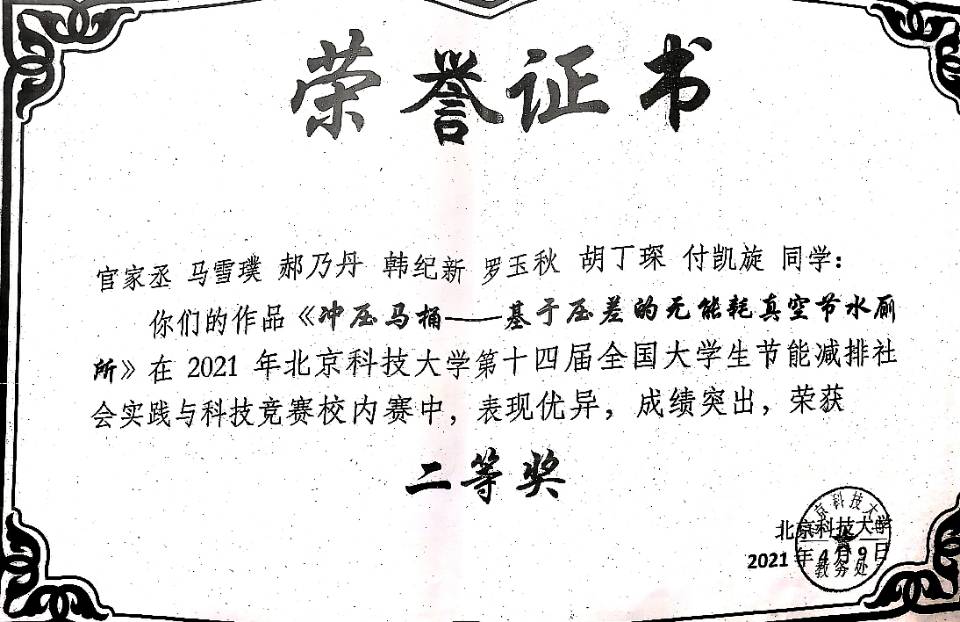 荣誉证书
官家丞 马雪璞 郝乃丹 韩纪新 罗玉秋 胡丁琛 付凯旋 同学：
你们的作品《冲压马桶——基于压差的无能耗真空节水厕
所》在 2021 年北京科技大学第十四届全国大学生节能减排社
会实践与科技竞赛校内赛中，表现优异，成绩突出，荣获
二等奖
北京科技大学
2021 年 4 月 9 日
教务处